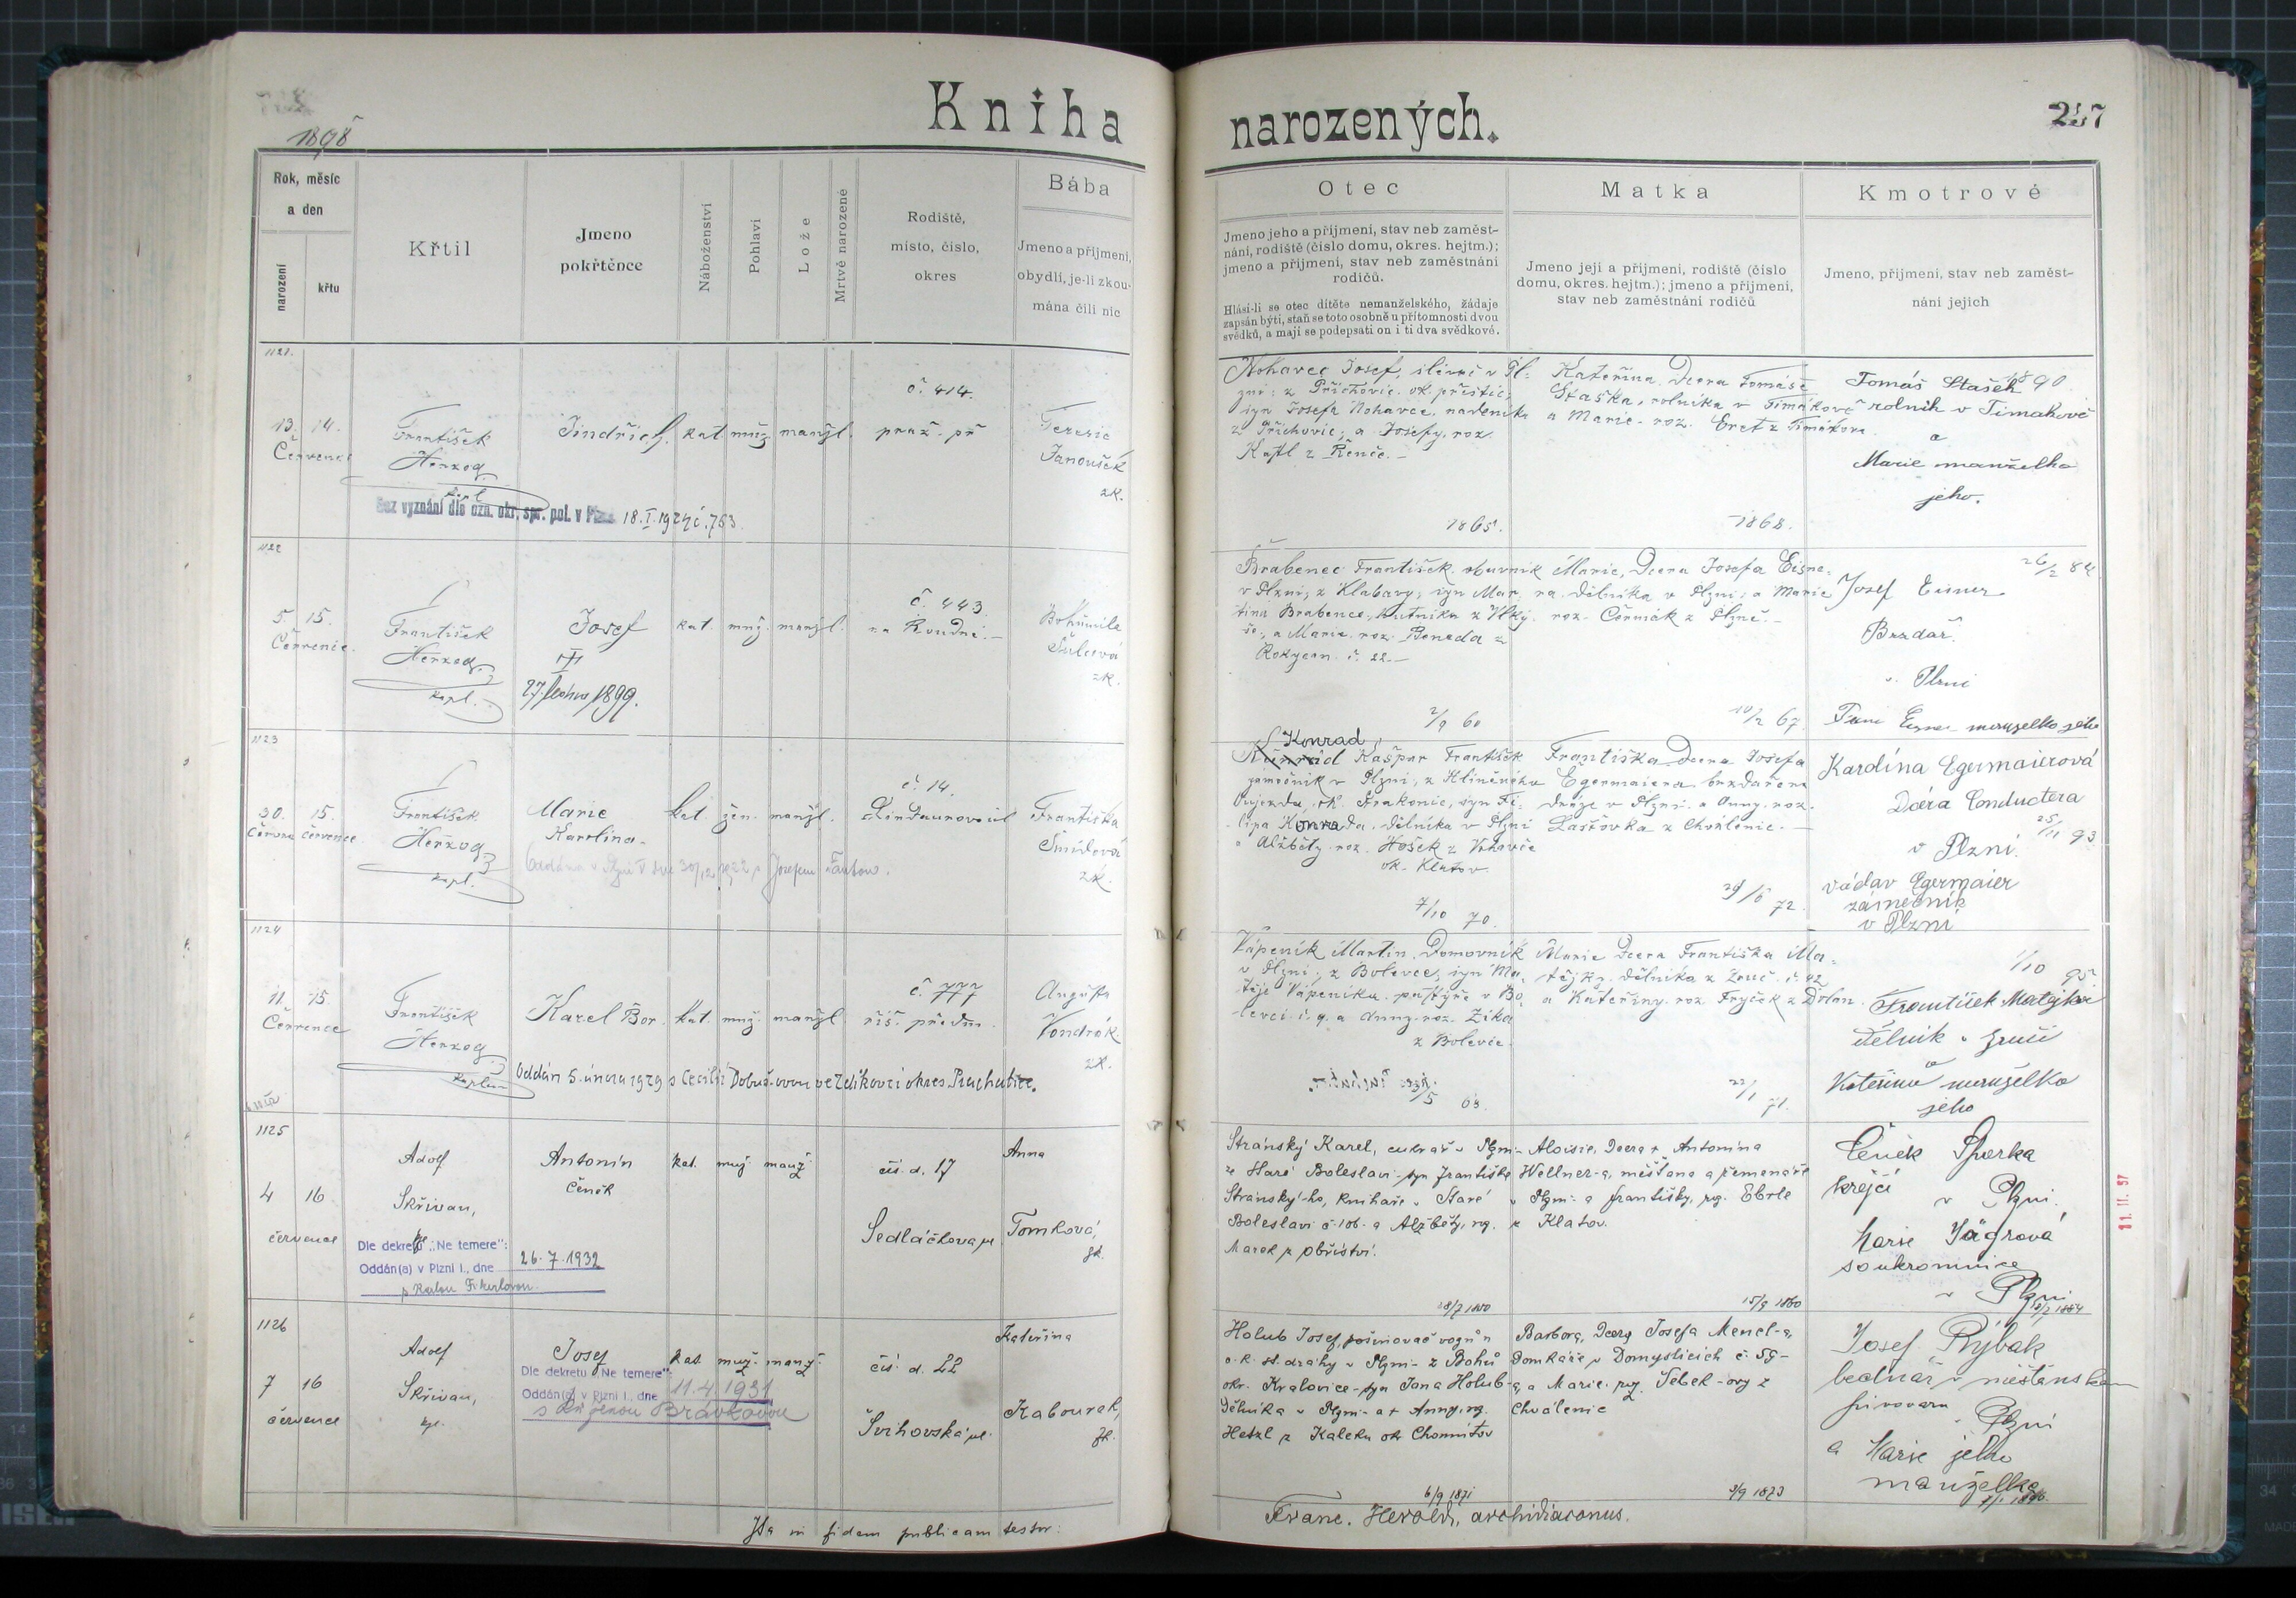 Kniha
narozených.
1898
257
Rok, měsíc
a den
narození
křtu
Křtil
Jmeno
pokřtěnce
Náboženství
Pohlaví
Lože
Mrtvě narozené
Rodiště,
místo, číslo,
okres
Bába
Jmeno a příjmení,
obydlí, je-li zkou-
mána čili nic
Otec
Jmeno jeho a příjmení, stav neb zaměst-
nání, rodiště (číslo domu, okres. hejtm.);
jmeno a příjmení, stav neb zaměstnání
rodičů.
Hlásí-li se otec dítěte nemanželského, žádaje
zapsán býti, staň se toto osobně u přítomnosti dvou
svědků, a mají se podepsati on i ti dva svědkové.
Matka
Jmeno její a příjmení, rodiště (číslo
domu, okres. hejtm.); jmeno a příjmení,
stav neb zaměstnání rodičů
Kmotrové
Jmeno, příjmení, stav neb zaměst-
nání jejich
1121.
13. 14.
Července
František
Herzog
Jindřich
kat. muž. manžl.
č. 414.
praž. př
Terezie
Janoušek
zk.
Bez vyznání dle ozn. okr. spr. pol. v Plzni 18.I.1924 č. 763
Nohavec Josef, v Pl-
zni; z Příchovic ok. přeštic,
syn Josefa Nohavce, nadeníka
z Příchovic, a Josefy, roz.
z Řenče.-
1865.
Kateřina, Dcera Tomáše
Staška, rolníka v Timákově
a Marie roz. Eret z Timákova.
1868.
Tomáš Stašek 1890
rolník v Timakově
a
Marie manželka
jeho.
1122
5. 15.
Července.
František
Herzog
kapl.
Josef
27. ledna 1899.
kat. muž. manžl.
č. 443.
na Roudné.-
Bohumila
Šulcová
zk.
Brabenec František, obuvník
v Plzni; z Klabavy, syn Mar-
tina Brabence, hutníka z
a Marie roz. Benada z
Rokycan č. 22.-
2/9 60
Marie, Dcera Josefa Eisne-
ra, dělníka v Plzni; a Marie
roz. Čermák z Plzně.-
10/2 67
26/2 84
Josef Eisner
Brzdař
v Plzni
manželka jeho
1123
30. 15.
Června července.
František
Herzog
kapl.
Marie
Karolina.
kat. žen. manžl.
č. 14.
Lindaurova ul
Františka
Šmídová
zk.
Oddána v Plzni dne 30/12 1922 s Josefem
Konrad
Kašpar František
pomocník v Plzni, z Hliněného
Oujezda, ok. Strakonic, syn Fi-
lipa Konrada, dělníka v Plzni
a Alžběty roz. Hošek z
ok. Klatov.
7/10 70.
Františka Dcera Josefa
Egermaiera brzdaře na
dráze v Plzni a Anny, roz.
Laštovka z Chválenic.-
29/6 72.
Karolína Egermaierová
Dcéra Conductera
v Plzni.
25/11 93
václav Egermaier
zámečník
v Plzni
1124
11. 15.
Července
František
Herzog
kaplan
Karel Bor.
kat. muž. manžl
č. 777
říš. předm.
Augusta
Vondrák
zk.
Oddán 5. února 1929 s Cecilií ve Zdíkovci okres Prachatice.
Vápeník Martin, Domovník
v Plzni; z Bolevce, syn Ma-
těje Vápeníka, pastýře v Bo-
levci č. 9. a Anny roz. Zika
z Bolevce.
/5 63.
Marie Dcera Františka Ma-
tějky, dělníka z Zruč. č. 42
a Kateřiny roz. Fryček z Dolan.
22/1 71.
1/10 95
František Matějka
Dělník v Zruči
a
Kateřina manželka
jeho
1125
4 16
července
Adolf
Skřivan,
Antonín
Čeněk
kat. muž. manž.
čís. d. 17
Sedláčkova ul
Anna
Tomková,
zk.
Dle dekretu „Ne temere":
Oddán(a) v Plzni I., dne 26.7.1932
Stránský Karel, cukrář v Plzni-
ze Staré Boleslavi - syn Františka
Stránský-ho, knihaře v Staré
Boleslavi č. 106- a Alžběty, roz.
Marek z Obříství.
18/7 1850
Aloisie, Dcera + Antonína
Wellner-a, měšťana a řemenáře
v Plzni- a Františky, roz. Eberle
z Klatov.
15/9 1860
Čeněk Sporka
krejčí
v Plzni.
Marie Jägrová
soukromnice
v Plzni
11. III. 57
1126
7 16
července
Adolf
Skřivan,
kpl.
Josef
kat. muž. manž.
čís. d. 22
Švihovská ul.
Kateřina
Kabourek,
zk.
Dle dekretu „Ne temere":
Oddán(a) v Plzni I., dne 11.4.1931
Holub Josef, pošinovač vozů n
c. k. st. dráhy v Plzni- z
okr. Kralovice - syn Jana Holub-a,
dělníka v Plzni- a + Anny, roz.
Hetzl z Kaleku ok Chomútov
6/9 1871
Barbora, Dcera Josefa Mencl-a,
domkáře v Domyslicích č. 59-
a Marie roz. Šebek-ovy z
Chválenic
3/9 1873
Josef Rybak
bednář v měšťanském
pivovaru v Plzni
a Marie jeho
manželka
Ita in fidem publicam testor:
Franc. Herold, archidiaconus.